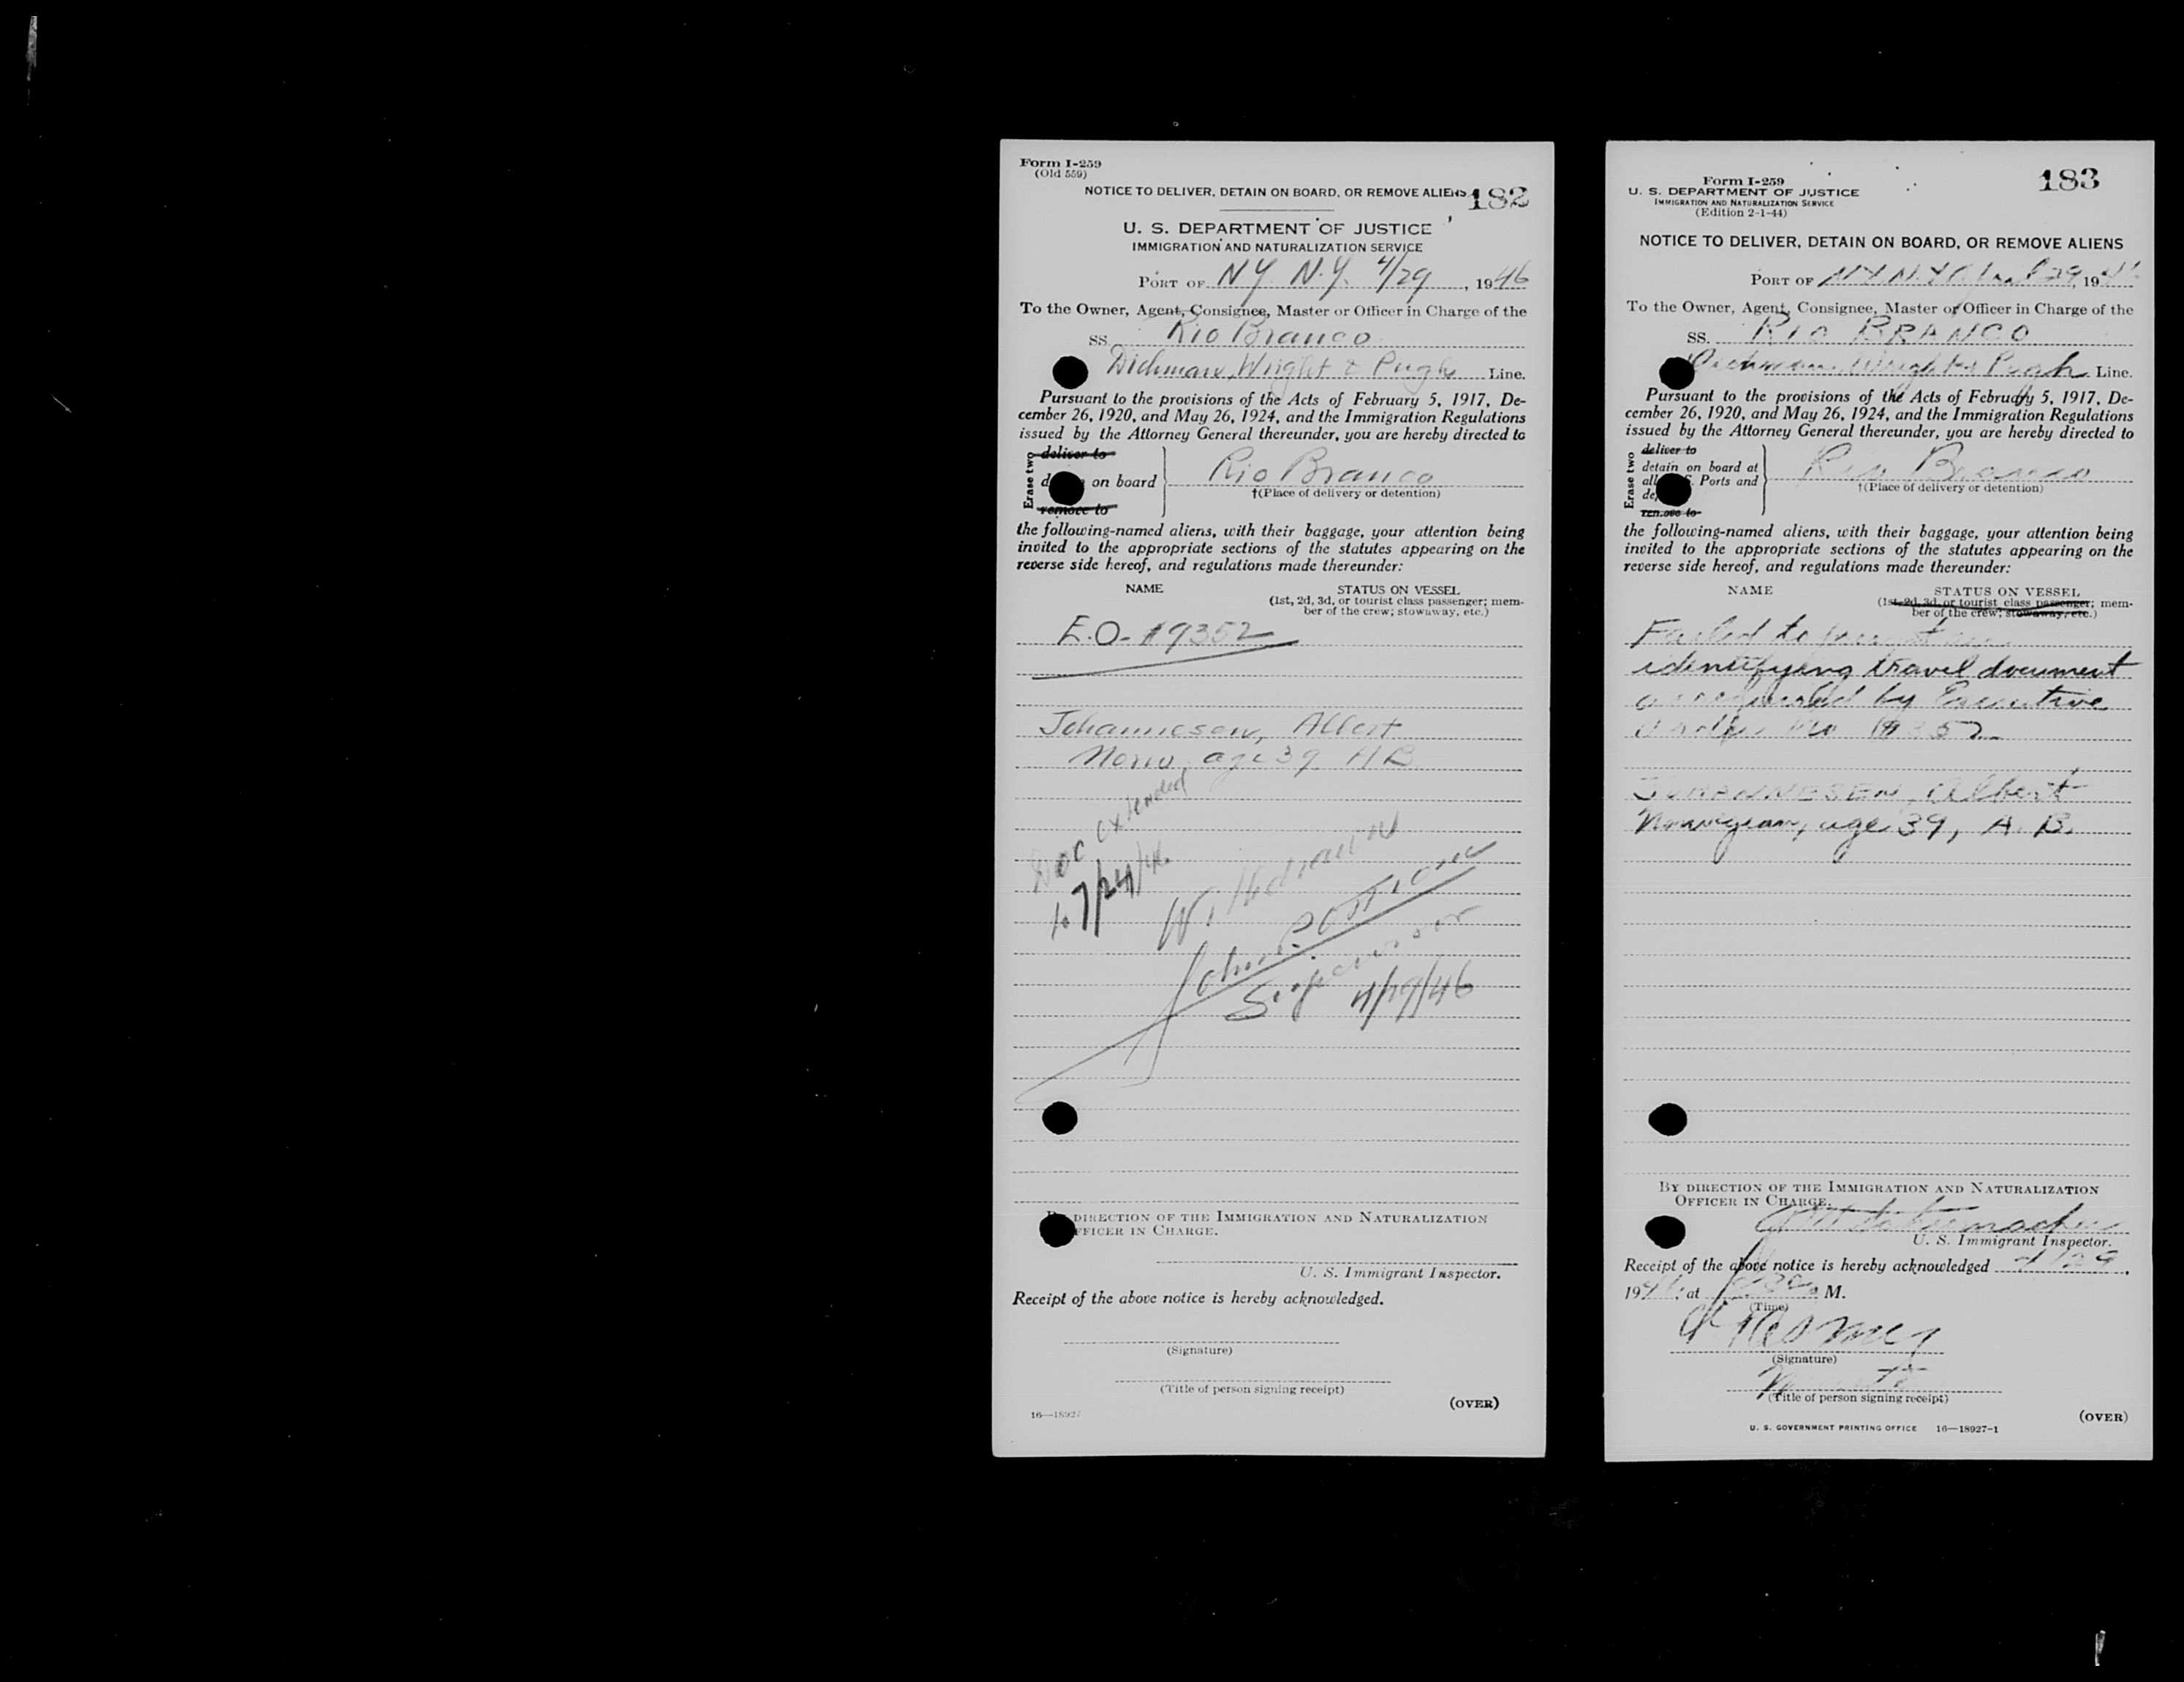 Form I-259
(Old 559)
NOTICE TO DELIVER, DETAIN ON BOARD, OR REMOVE ALIENS
182
U. S. DEPARTMENT OF JUSTICE
IMMIGRATION AND NATURALIZATION SERVICE
PORT OF N.Y. N.Y. 4/29, 1946
To the Owner, Agent, Consignee, Master or Officer in Charge of the
SS. Rio Branco
Dichmann, Wright & Pugh Line.
Pursuant to the provisions of the Acts of February 5, 1917, De-
cember 26, 1920, and May 26, 1924, and the Immigration Regulations
issued by the Attorney General thereunder, you are hereby directed to
Erase two
deliver to
on board
remove to
Rio Branco
†(Place of delivery or detention)
the following-named aliens, with their baggage, your attention being
invited to the appropriate sections of the statutes appearing on the
reverse side hereof, and regulations made thereunder:
NAME STATUS ON VESSEL
(1st, 2d, 3d, or tourist class passenger; mem-
ber of the crew; stowaway, etc.)
E.O. 9352
Johannesen, Albert
Norw, age 39 AB
Doc extended
to 7/24/46
Withdrawn
John
Supervisor
4/29/46
DIRECTION OF THE IMMIGRATION AND NATURALIZATION
OFFICER IN CHARGE.
U. S. Immigrant Inspector.
Receipt of the above notice is hereby acknowledged.
(Signature)
(Title of person signing receipt)
(OVER)
16—18927
Form I-259
183
U. S. DEPARTMENT OF JUSTICE
IMMIGRATION AND NATURALIZATION SERVICE
(Edition 2-1-44)
NOTICE TO DELIVER, DETAIN ON BOARD, OR REMOVE ALIENS
PORT OF N Y N.Y. April 29, 1946
To the Owner, Agent, Consignee, Master or Officer in Charge of the
SS. RIO BRANCO
Dichmann, Wright & Pugh Line.
Pursuant to the provisions of the Acts of February 5, 1917, De-
cember 26, 1920, and May 26, 1924, and the Immigration Regulations
issued by the Attorney General thereunder, you are hereby directed to
Erase two
deliver to
detain on board at
all Ports and
remove to
Rio Branco
†(Place of delivery or detention)
the following-named aliens, with their baggage, your attention being
invited to the appropriate sections of the statutes appearing on the
reverse side hereof, and regulations made thereunder:
NAME STATUS ON VESSEL
(1st, 2d, 3d, or tourist class passenger; mem-
ber of the crew; stowaway, etc.)
Failed to present an
identifying travel document
as required by Executive
Order No 9352
JOHANNESEN, Albert
Norwegian, age 39, A. B.
BY DIRECTION OF THE IMMIGRATION AND NATURALIZATION
OFFICER IN CHARGE.
U. S. Immigrant Inspector.
Receipt of the above notice is hereby acknowledged 4/29,
1946, at M.
(Time)
(Signature)
(Title of person signing receipt)
(OVER)
U. S. GOVERNMENT PRINTING OFFICE 16—18927-1